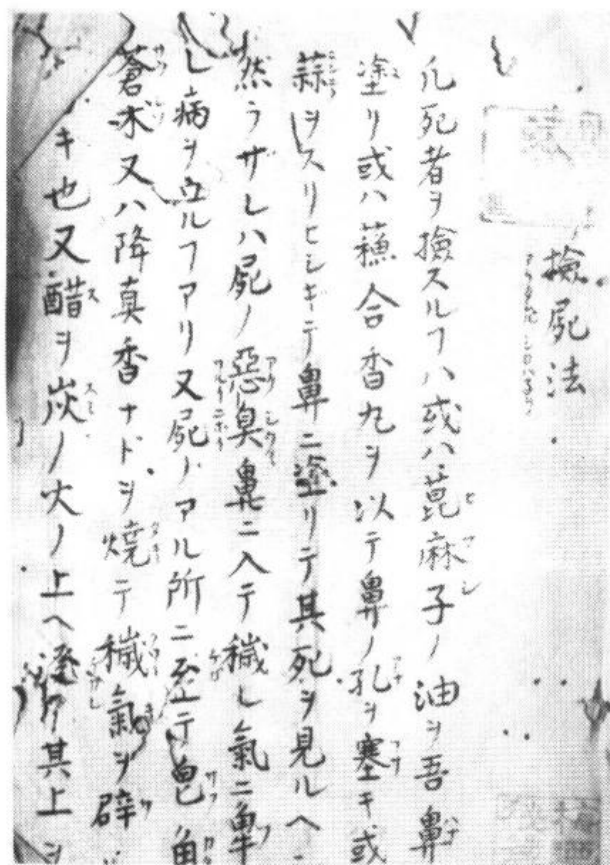 撿屍法
凢死者ヲ撿スルヿハ或ハ萞麻子ノ油ヲ吾鼻
塗リ或ハ蘓合香丸ヲ以テ鼻ノ孔ヲ塞キ或
蒜ヲスリヒシギテ鼻ニ塗リテ其死ヲ見ルヘ
然ラザレハ屍ノ惡臭鼻ニ入テ穢レ氣ニ
レ病ヲ ルヿアリ又屍ノアル所ニ至テ皂角
蒼朮又ハ降真香ナドヲ燒テ穢氣ヲ辟
キ也又醋ヲ炭ノ火ノ上ヘ 其上ヲ